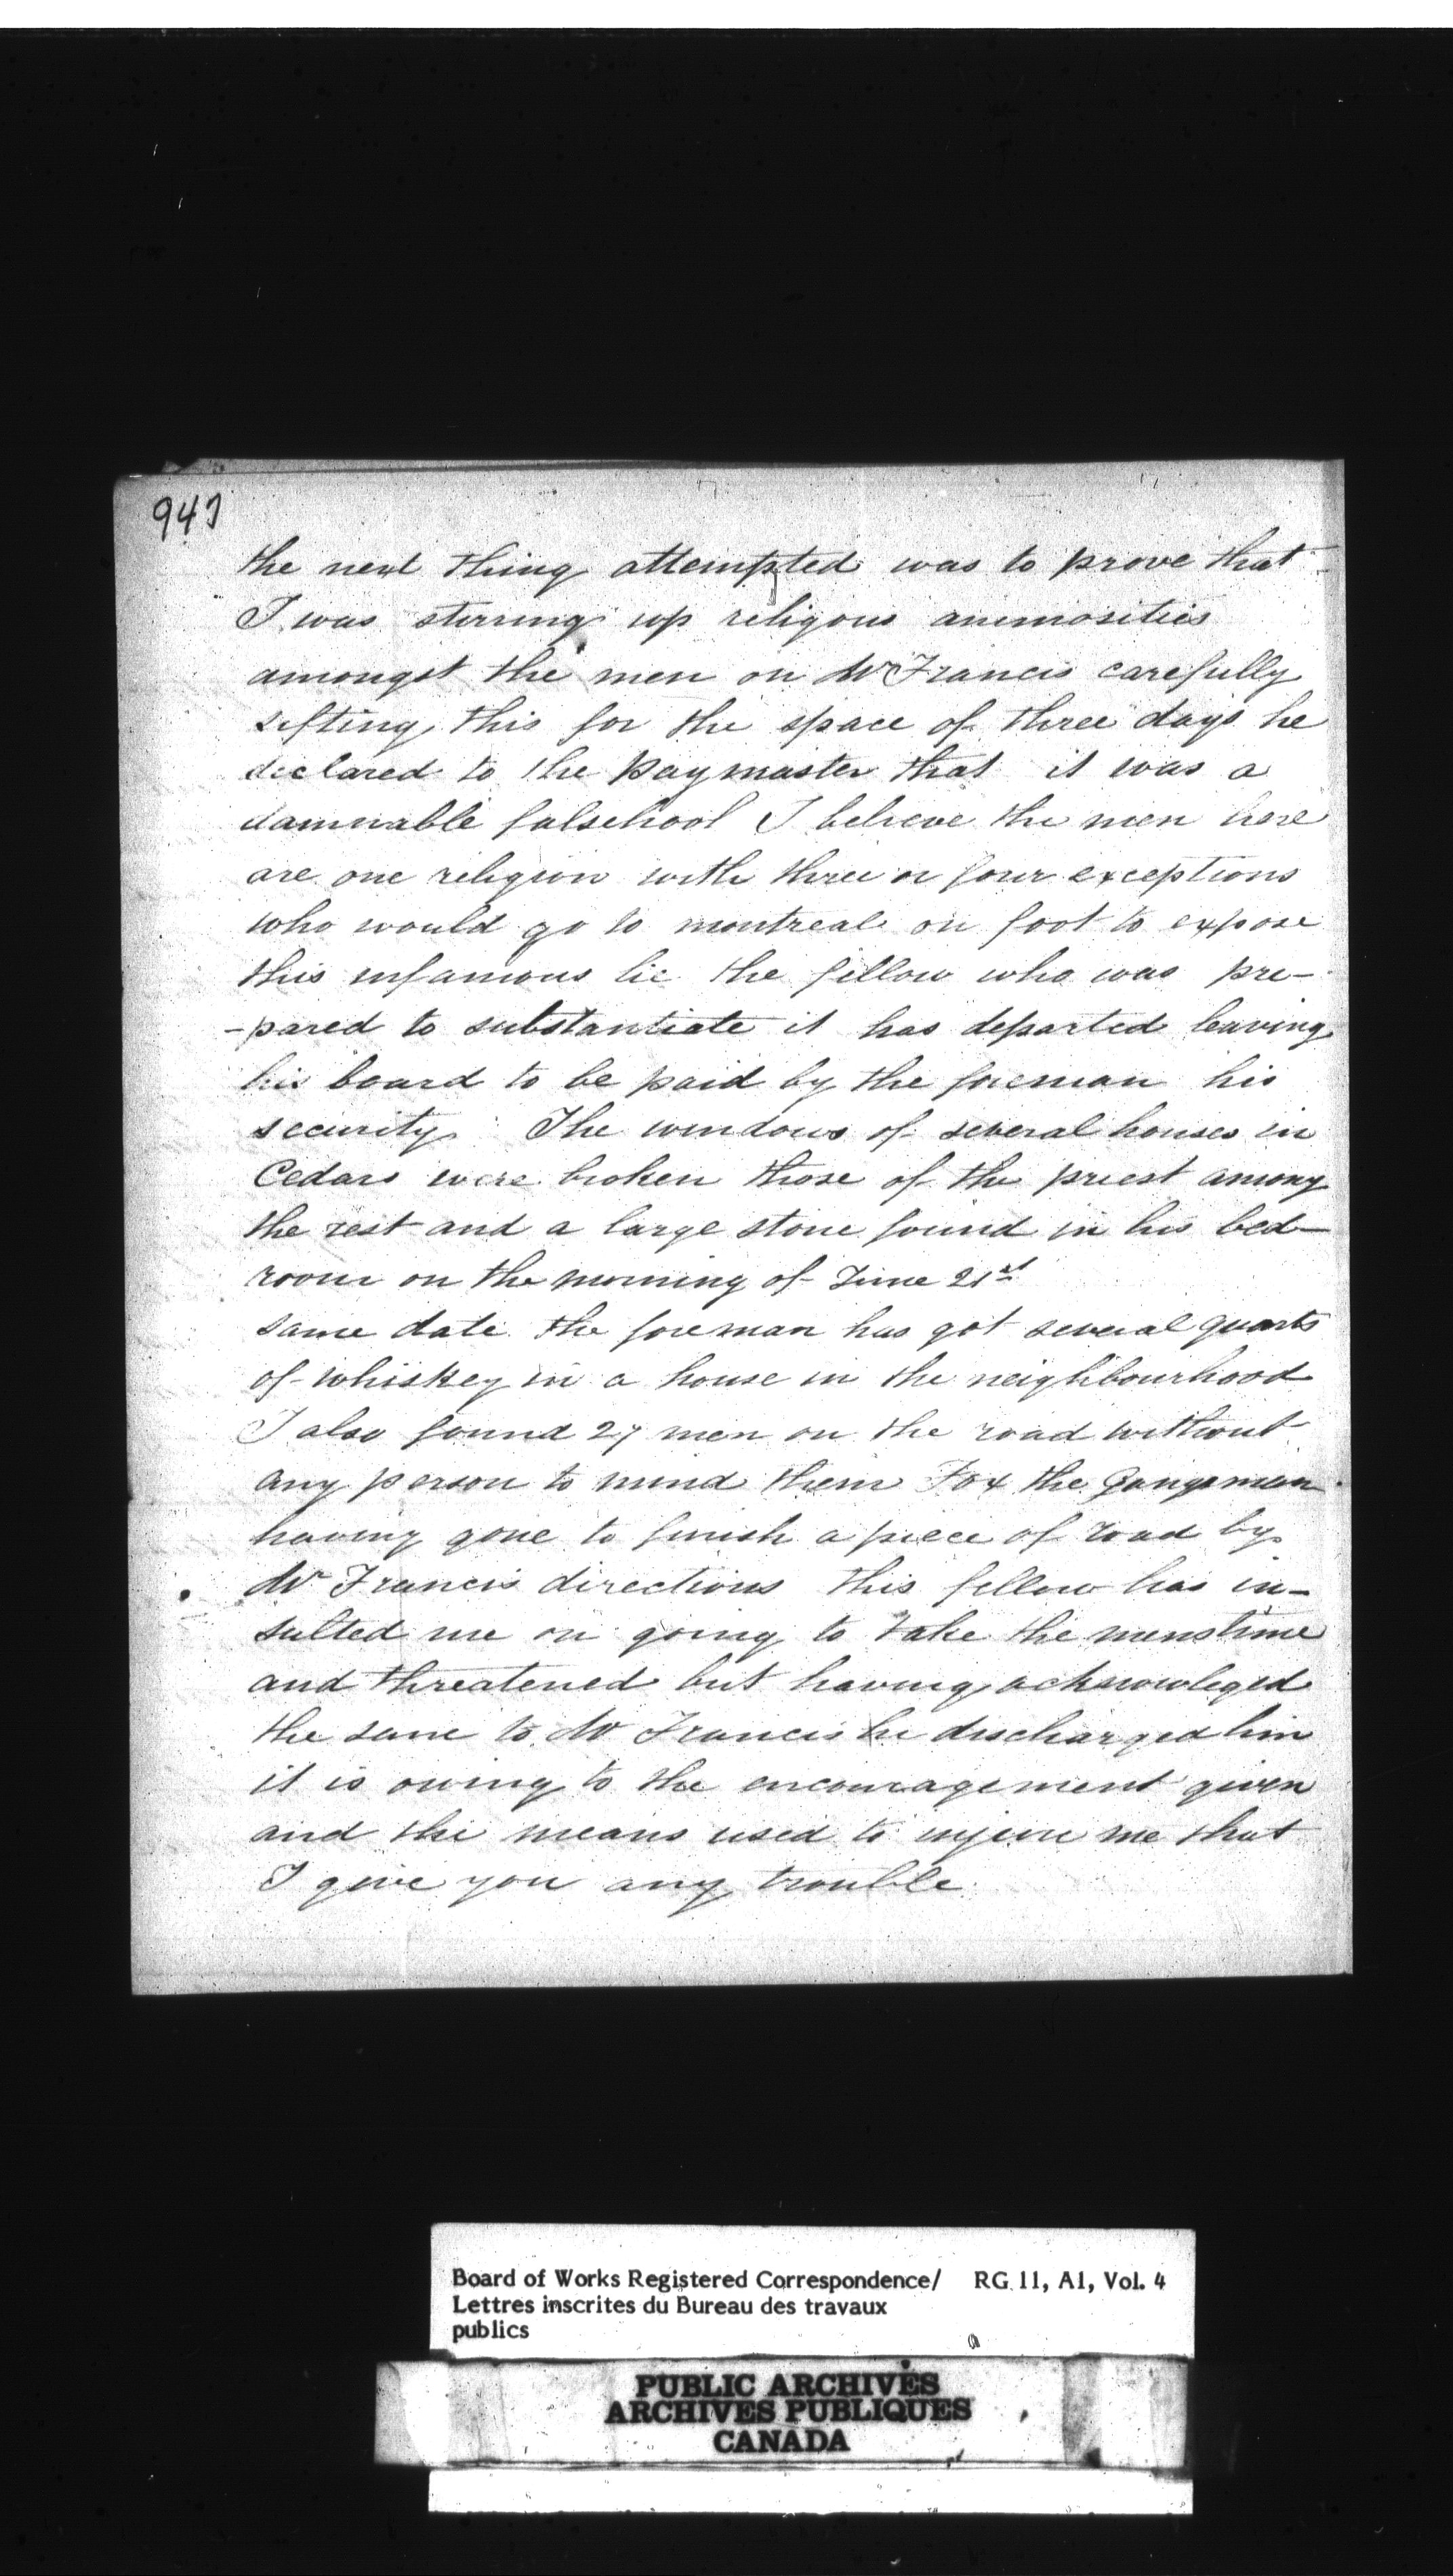 947
the next thing attempted was to prove that
I was stirring up religous animosities
amongst the men on Mr Francis carefully
sifting this for the space of three days he
declared to the paymaster that it was a
damnable falsehool I believe the men here
are one religion with three or four exceptions
who would go to montreal on foot to expose
this infamous lie the fellow who was pre-
-pared to substantiate it has departed leaving
his board to be paid by the foreman his
security The windows of several houses in
Cedars were broken those of the priest among
the rest and a large stone found in his bed-
room on the morning of June 21st
same date the foreman has got several quarts
of whiskey in a house in the neighbourhood
I also found 27 men on the road without
any person to mind them Fox the Gangsman
having gone to finish a piece of road by
Mr Francis directions this fellow has in-
sulted me on going to take the menstime
and threatened but having acknowleged
the same to Mr Francis he discharged him
it is owing to the encouragement given
and the means used to injure me that
I give you any trouble
Board of Works Registered Correspondence/ RG 11, A1, Vol. 4
Lettres inscrites du Bureau des travaux
publics
PUBLIC ARCHIVES
ARCHIVES PUBLIQUES
CANADA